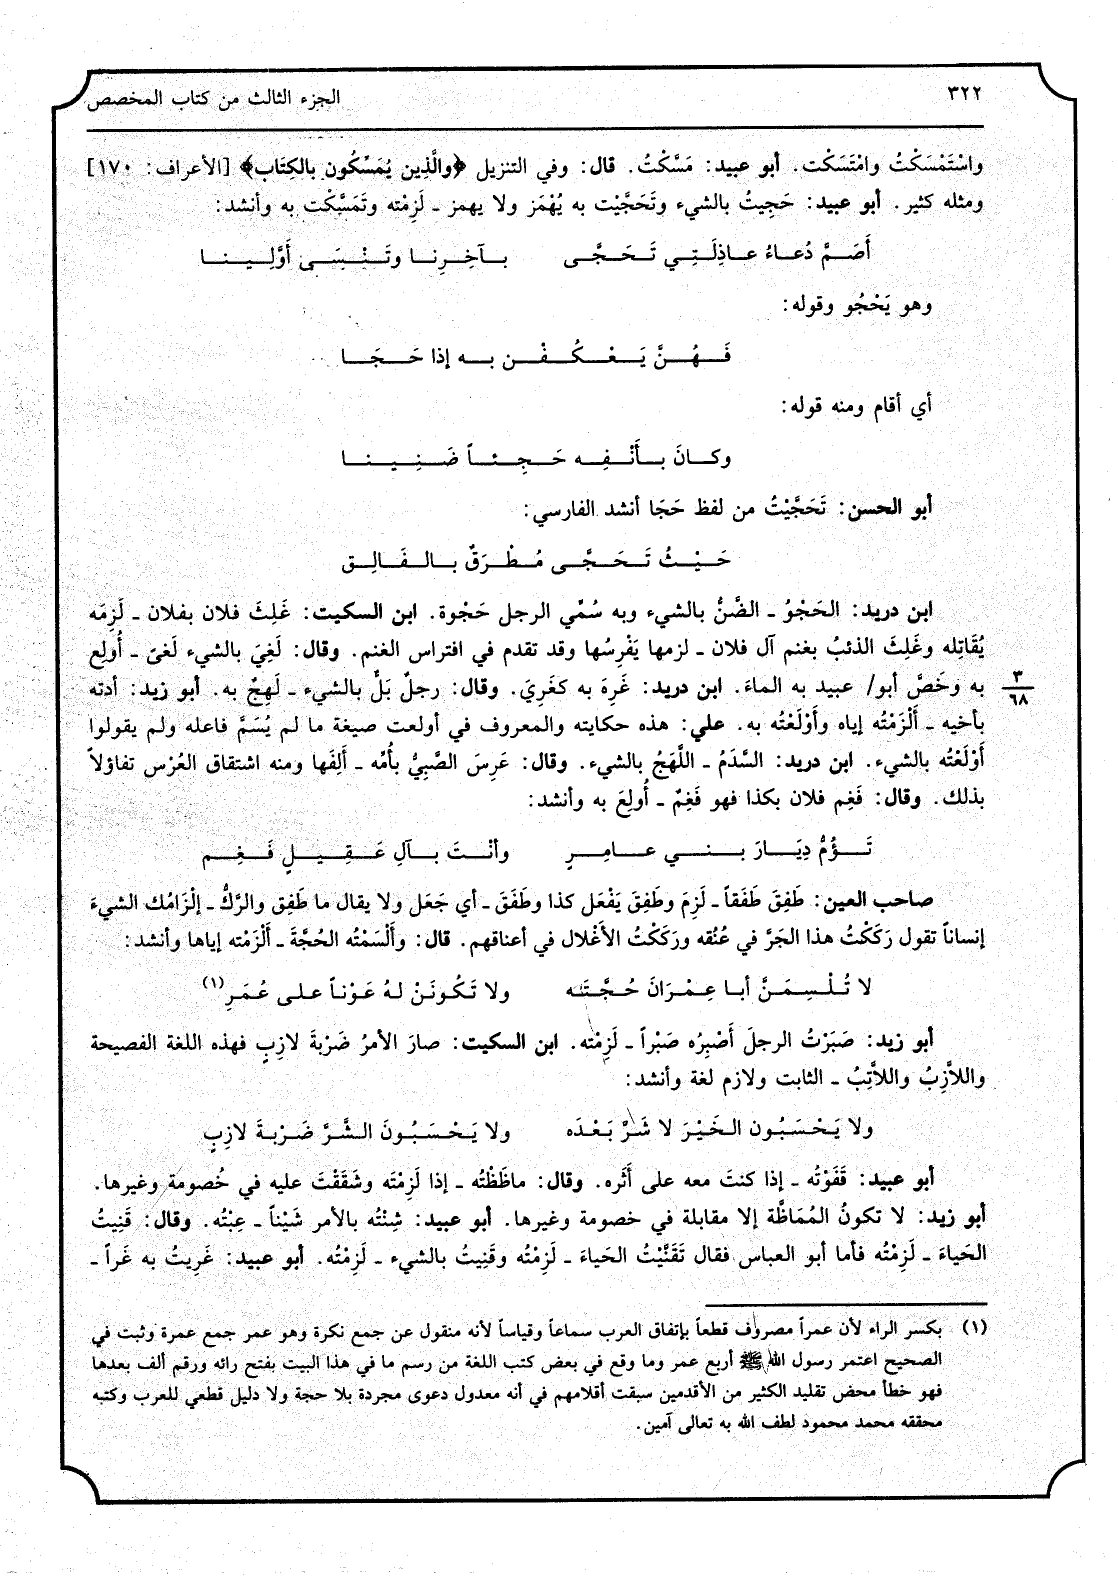 ٣٢٢
الجزء الثالث من كتاب المخصص
واسْتَمْسَكْتُ وامْتَسَكْت. أبو عبيد: مَسَّكْتُ. قال: وفي التنزيل ﴿والَّذِين يُمَسِّكُون بالكِتَاب﴾ [الأعراف: ١٧٠]
ومثله كثير. أبو عبيد: حَجِيتُ بالشيء وتَحَجَّيْت به يُهْمَز ولا يهمز ـ لَزِمْته وتَمَسَّكْت به وأنشد:
أَصَمَّ دُعاءُ عاذِلَتِي تَحَجَّى بآخِرِنا وتَنْسَى أَوَّلِينا
وهو يَحْجُو وقوله:
فَهُنَّ يَعْكُفْن به إذا حَجَا
أي أقام ومنه قوله:
وكانَ بأَنْفِه حَجِئاً ضَنِينا
أبو الحسن: تَحَجَّيْتُ من لفظ حَجَا أنشد الفارسي:
حَيْثُ تَحَجَّى مُطْرَقٌ بالفَالِق
ابن دريد: الحَجْوُ ـ الضَّنُّ بالشيء وبه سُمِّي الرجل حَجْوة. ابن السكيت: غَلِثَ فلان بفلان ـ لَزِمَه
يُقَاتِله وغَلِثَ الذئبُ بغنم آل فلان ـ لزمها يَفْرِسُها وقد تقدم في افتراس الغنم. وقال: لَغِيَ بالشيء لَغىً ـ أُولِع
به وخَصَّ أبو/ عبيد به الماءَ. ابن دريد: غَرِهَ به كغَرِيَ. وقال: رجلٌ بَلٌّ بالشيء ـ لَهِجٌ به. أبو زيد: أدته
٣
٦٨
بأخيه ـ أَلْزَمْتُه إياه وأَوْلَعْتُه به. علي: هذه حكايته والمعروف في أولعت صيغة ما لم يُسَمَّ فاعله ولم يقولوا
أَوْلَعْتُه بالشيء. ابن دريد: السَّدَمُ ـ اللَّهَجُ بالشيء. وقال: عَرِسَ الصَّبِيُّ بأُمِّه ـ أَلِفَها ومنه اشتقاق العُرْس تفاؤلاً
بذلك. وقال: فَغِم فلان بكذا فهو فَغِمٌ ـ أُولِعَ به وأنشد:
تَؤُمُّ دِيَارَ بني عامِرٍ وأنْتَ بآلِ عَقِيلٍ فَغِم
صاحب العين: طَفِقَ طَفَقاً ـ لَزِمَ وطَفِقَ يَفْعَل كذا وطَفَقَ ـ أي جَعَل ولا يقال ما طَفِق والرَّكُّ ـ إلْزَامُك الشيءَ
إنساناً تقول رَكَكْتُ هذا الجَرَّ في عُنُقه ورَكَكْتُ الأَغْلال في أعناقهم. قال: وأَلْسَمْتُه الحُجَّةَ ـ أَلْزَمْته إياها وأنشد:
لا تُلْسِمَنَّ أبا عِمْرَانَ حُجَّتَه ولا تَكُونَنْ لهُ عَوْناً على عُمَرِ(١)
أبو زيد: صَبَرْتُ الرجلَ أَصْبِرُه صَبْراً ـ لَزِمْته. ابن السكيت: صارَ الأمرُ ضَرْبةَ لازِبٍ فهذه اللغة الفصيحة
واللاَّزِبُ واللاَّتِبُ ـ الثابت ولازم لغة وأنشد:
ولا يَحْسَبُون الخَيْرَ لا شَرَّ بَعْدَه ولا يَحْسَبُونَ الشَّرَّ ضَرْبةَ لازِبِ
أبو عبيد: قَفَوْتُه ـ إذا كنتَ معه على أَثَره. وقال: ماظَظْتُه ـ إذا لَزِمْتَه وشَقَقْتَ عليه في خُصومة وغيرها.
أبو زيد: لا تكونُ المُمَاظَّة إلا مقابلة في خصومة وغيرها. أبو عبيد: شِنْتُه بالأمر شَيْناً ـ عِبْتُه. وقال: قَنِيتُ
الحَياءَ ـ لَزِمْتُه فأما أبو العباس فقال تَقَنَّيْتُ الحَياءَ ـ لَزِمْتُه وقَنِيتُ بالشيء ـ لَزِمْتُه. أبو عبيد: غَرِيتُ به غَراً ـ
(١) بكسر الراء لأن عمراً مصروف قطعاً بإتفاق العرب سماعاً وقياساً لأنه منقول عن جمع نكرة وهو عمر جمع عمرة وثبت في
الصحيح اعتمر رسول الله ﷺ أربع عمر وما وقع في بعض كتب اللغة من رسم ما في هذا البيت بفتح رائه ورقم ألف بعدها
فهو خطأ محض تقليد الكثير من الأقدمين سبقت أقلامهم في أنه معدول دعوى مجردة بلا حجة ولا دليل قطعي للعرب وكتبه
محققه محمد محمود لطف الله به تعالى آمين.